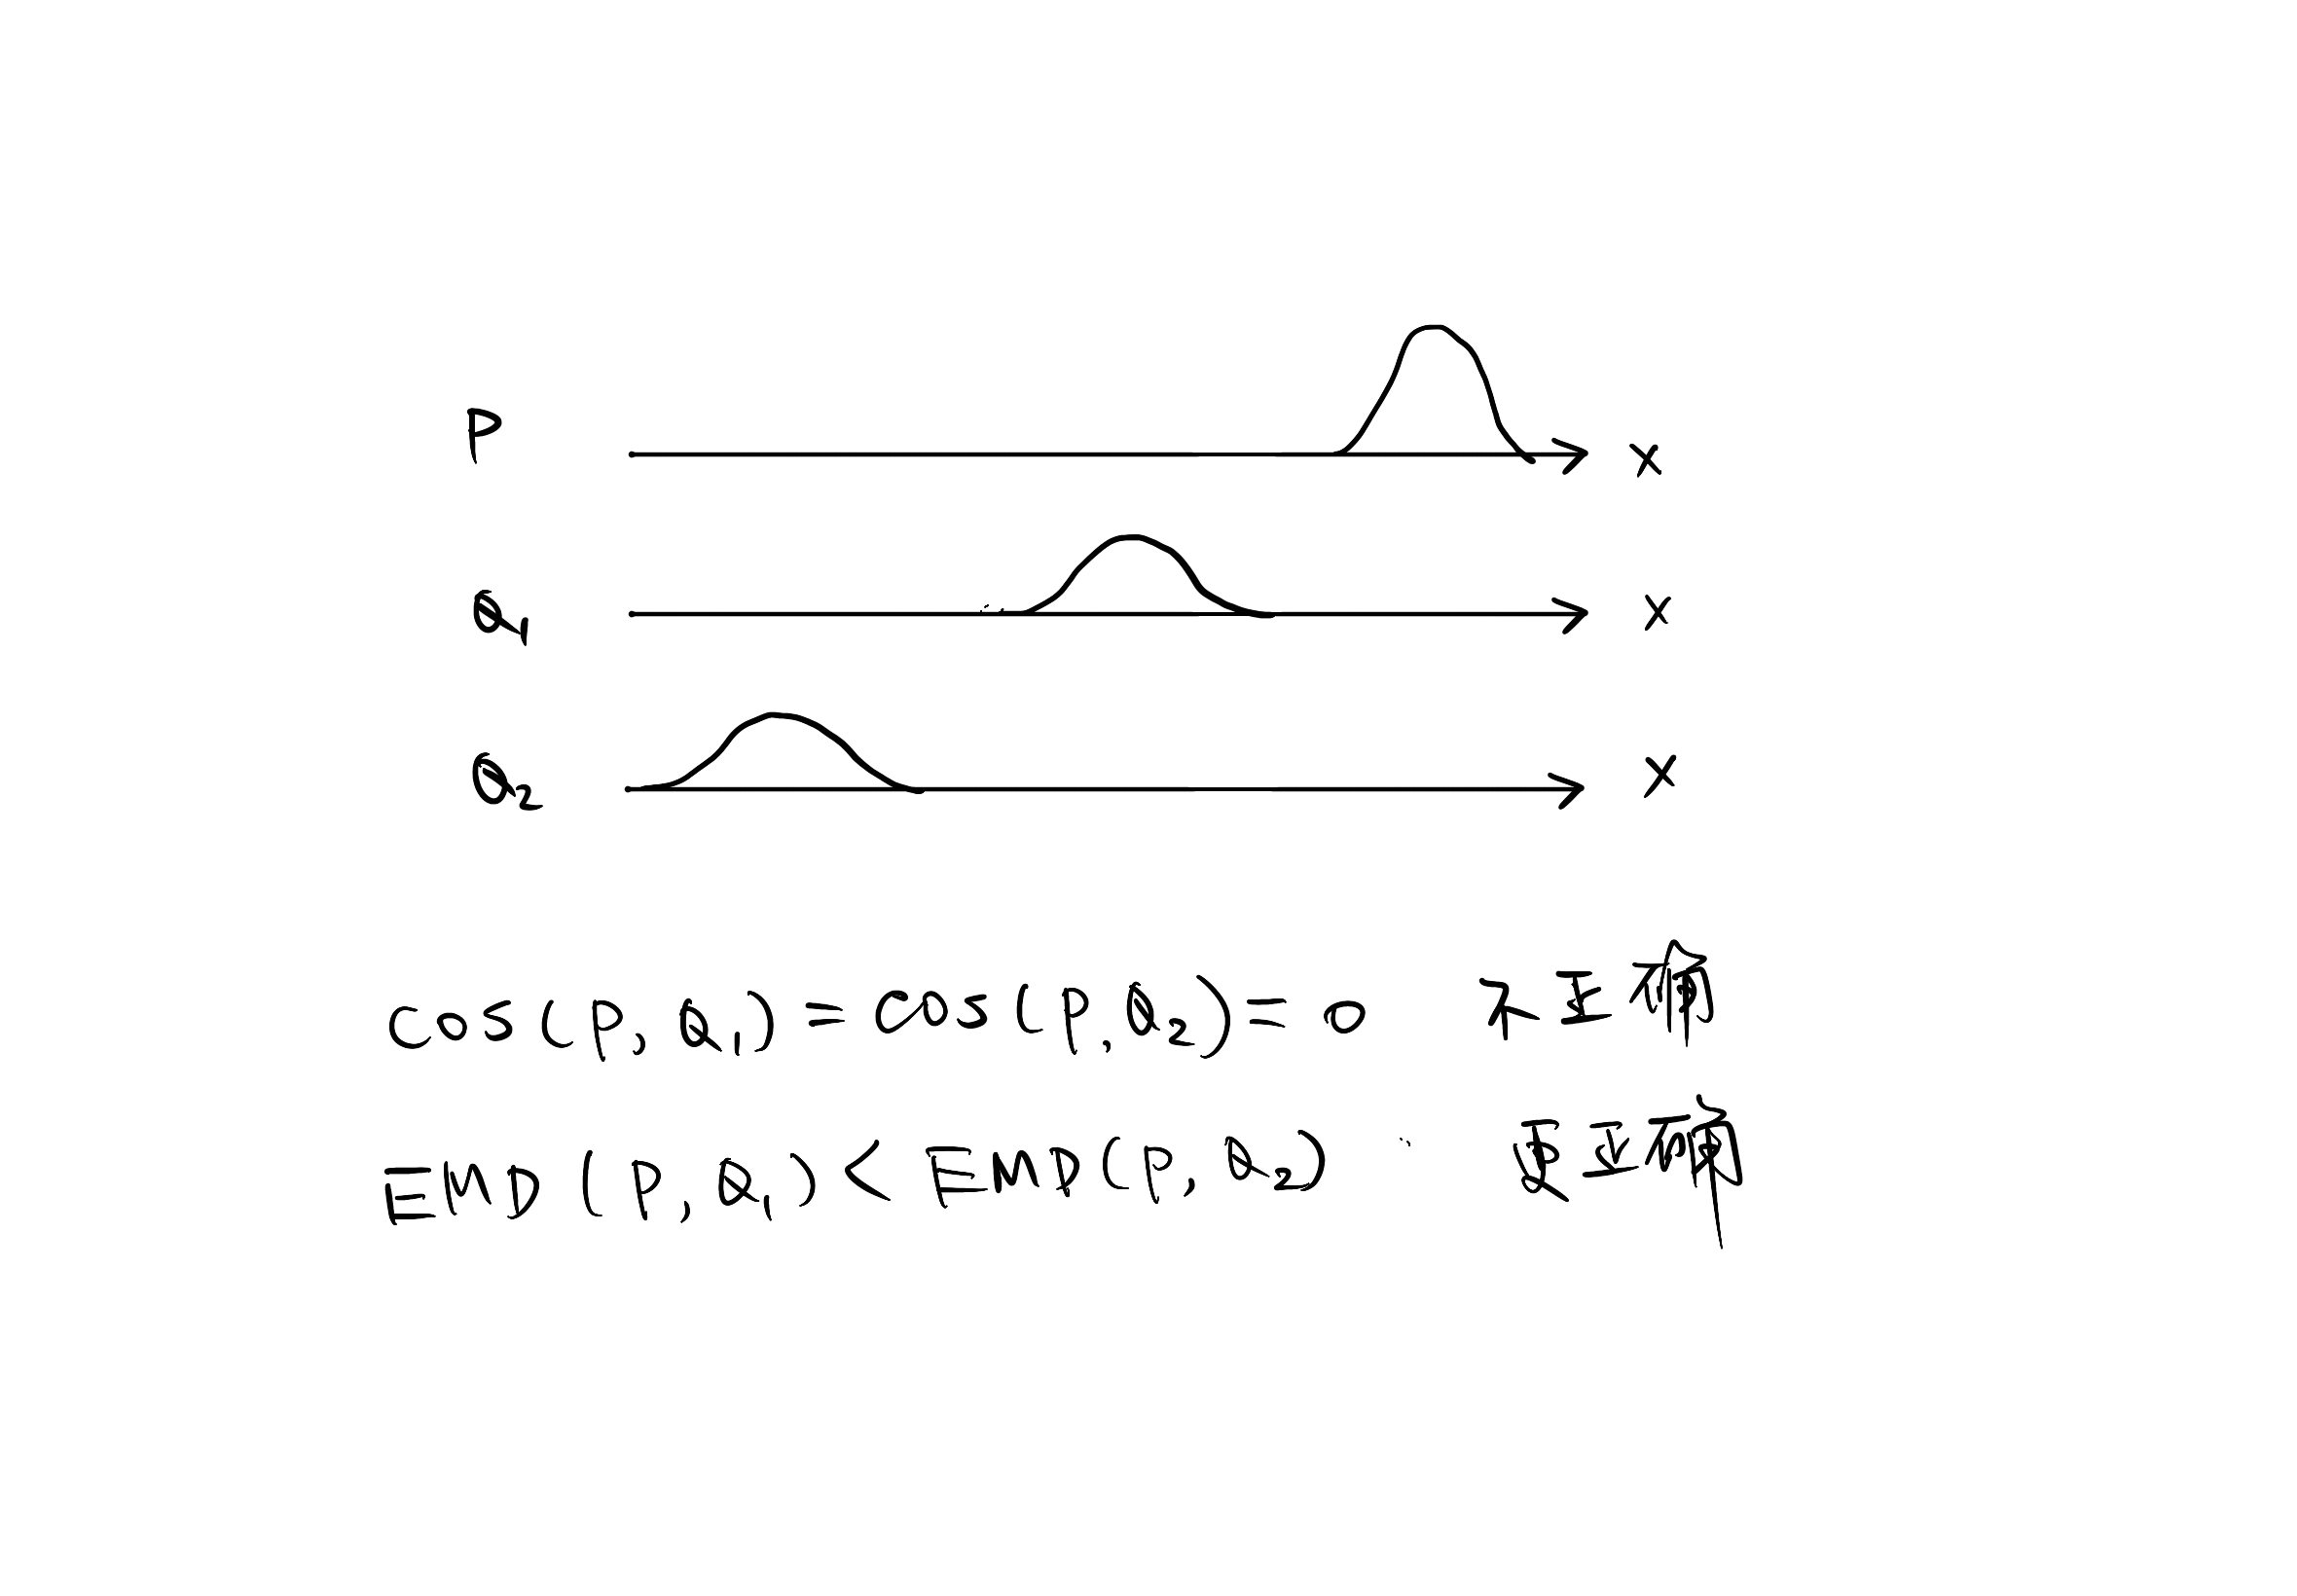 P x
Q1 x
Q2 x
cos(P,Q1)=cos(P,Q2)=0 不正确
EMD(P,Q1)<EMD(P,Q2) 更正确